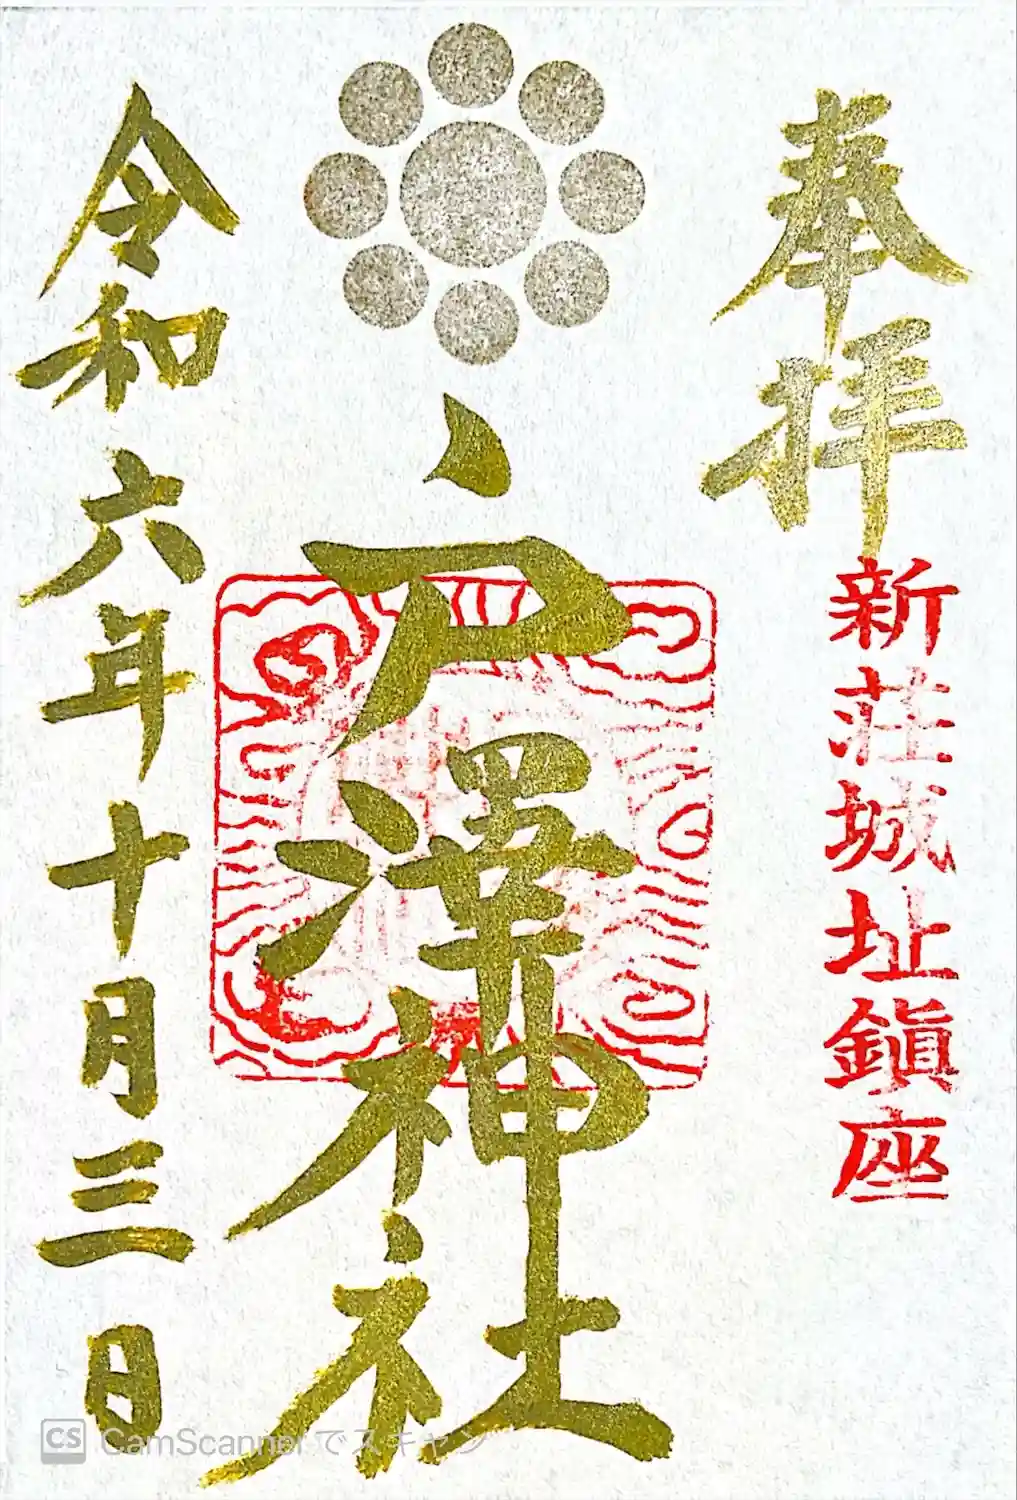 奉拝
新荘城址鎮座
戸澤神社
令和六年十月三日
CS CamScannerでスキャン